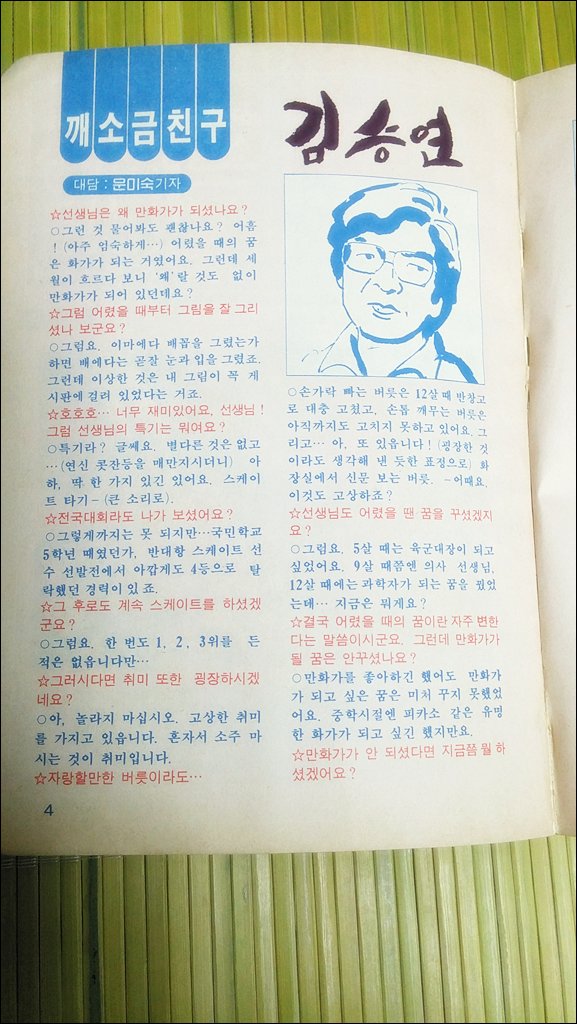 깨소금친구
김승연
대담 : 문미숙기자
☆선생님은 왜 만화가가 되셨나요?
○그런 것 물어봐도 괜찮나요? 어흠
! (아주 엄숙하게…) 어렸을 때의 꿈
은 화가가 되는 거였어요. 그런데 세
월이 흐르다 보니 '왜'랄 것도 없이
만화가가 되어 있던데요?
☆그럼 어렸을 때부터 그림을 잘 그리
셨나 보군요?
○그럼요. 이마에다 배꼽을 그렸는가
하면 배에다는 곧잘 눈과 입을 그렸죠.
그런데 이상한 것은 내 그림이 꼭 게
시판에 걸려 있었다는 거죠.
☆호호호… 너무 재미있어요, 선생님!
그럼 선생님의 특기는 뭐여요?
○특기라? 글쎄요. 별다른 것은 없고
…(연신 콧잔등을 매만지시더니) 아
하, 딱 한 가지 있긴 있어요. 스케이
트 타기-(큰 소리로).
☆전국대회라도 나가 보셨어요?
○그렇게까지는 못 되지만…국민학교
5학년 때였던가, 반대항 스케이트 선
수 선발전에서 아깝게도 4등으로 탈
락했던 경력이 있 죠.
☆그 후로도 계속 스케이트를 하셨겠
군요?
○그럼요. 한 번도 1, 2, 3위를 든
적은 없읍니다만…
☆그러시다면 취미 또한 굉장하시겠
네요?
○아, 놀라지 마십시오. 고상한 취미
를 가지고 있읍니다. 혼자서 소주 마
시는 것이 취미입니다.
☆자랑할만한 버릇이라도…
○손가락 빠는 버릇은 12살 때 반창고
로 대충 고쳤고, 손톱 깨무는 버릇은
아직까지도 고치지 못하고 있어요. 그
리고… 아, 또 있읍니다! (굉장한 것
이라도 생각해 낸 듯한 표정으로) 화
장실에서 신문 보는 버릇. -어때요,
이것도 고상하죠?
☆선생님도 어렸을 땐 꿈을 꾸셨겠지
요?
○그럼요. 5살 때는 육군대장이 되고
싶었어요. 9살 때쯤엔 의사 선생님,
12살 때에는 과학자가 되는 꿈을 꿨었
는데… 지금은 뭐게요?
☆결국 어렸을 때의 꿈이란 자주 변한
다는 말씀이시군요. 그런데 만화가가
될 꿈은 안꾸셨나요?
○만화가를 좋아하긴 했어도 만화가
가 되고 싶은 꿈은 미처 꾸지 못했었
어요. 중학시절엔 피카소 같은 유명
한 화가가 되고 싶긴 했지만요.
☆만화가가 안 되셨다면 지금쯤 뭘 하
셨겠어요?
4